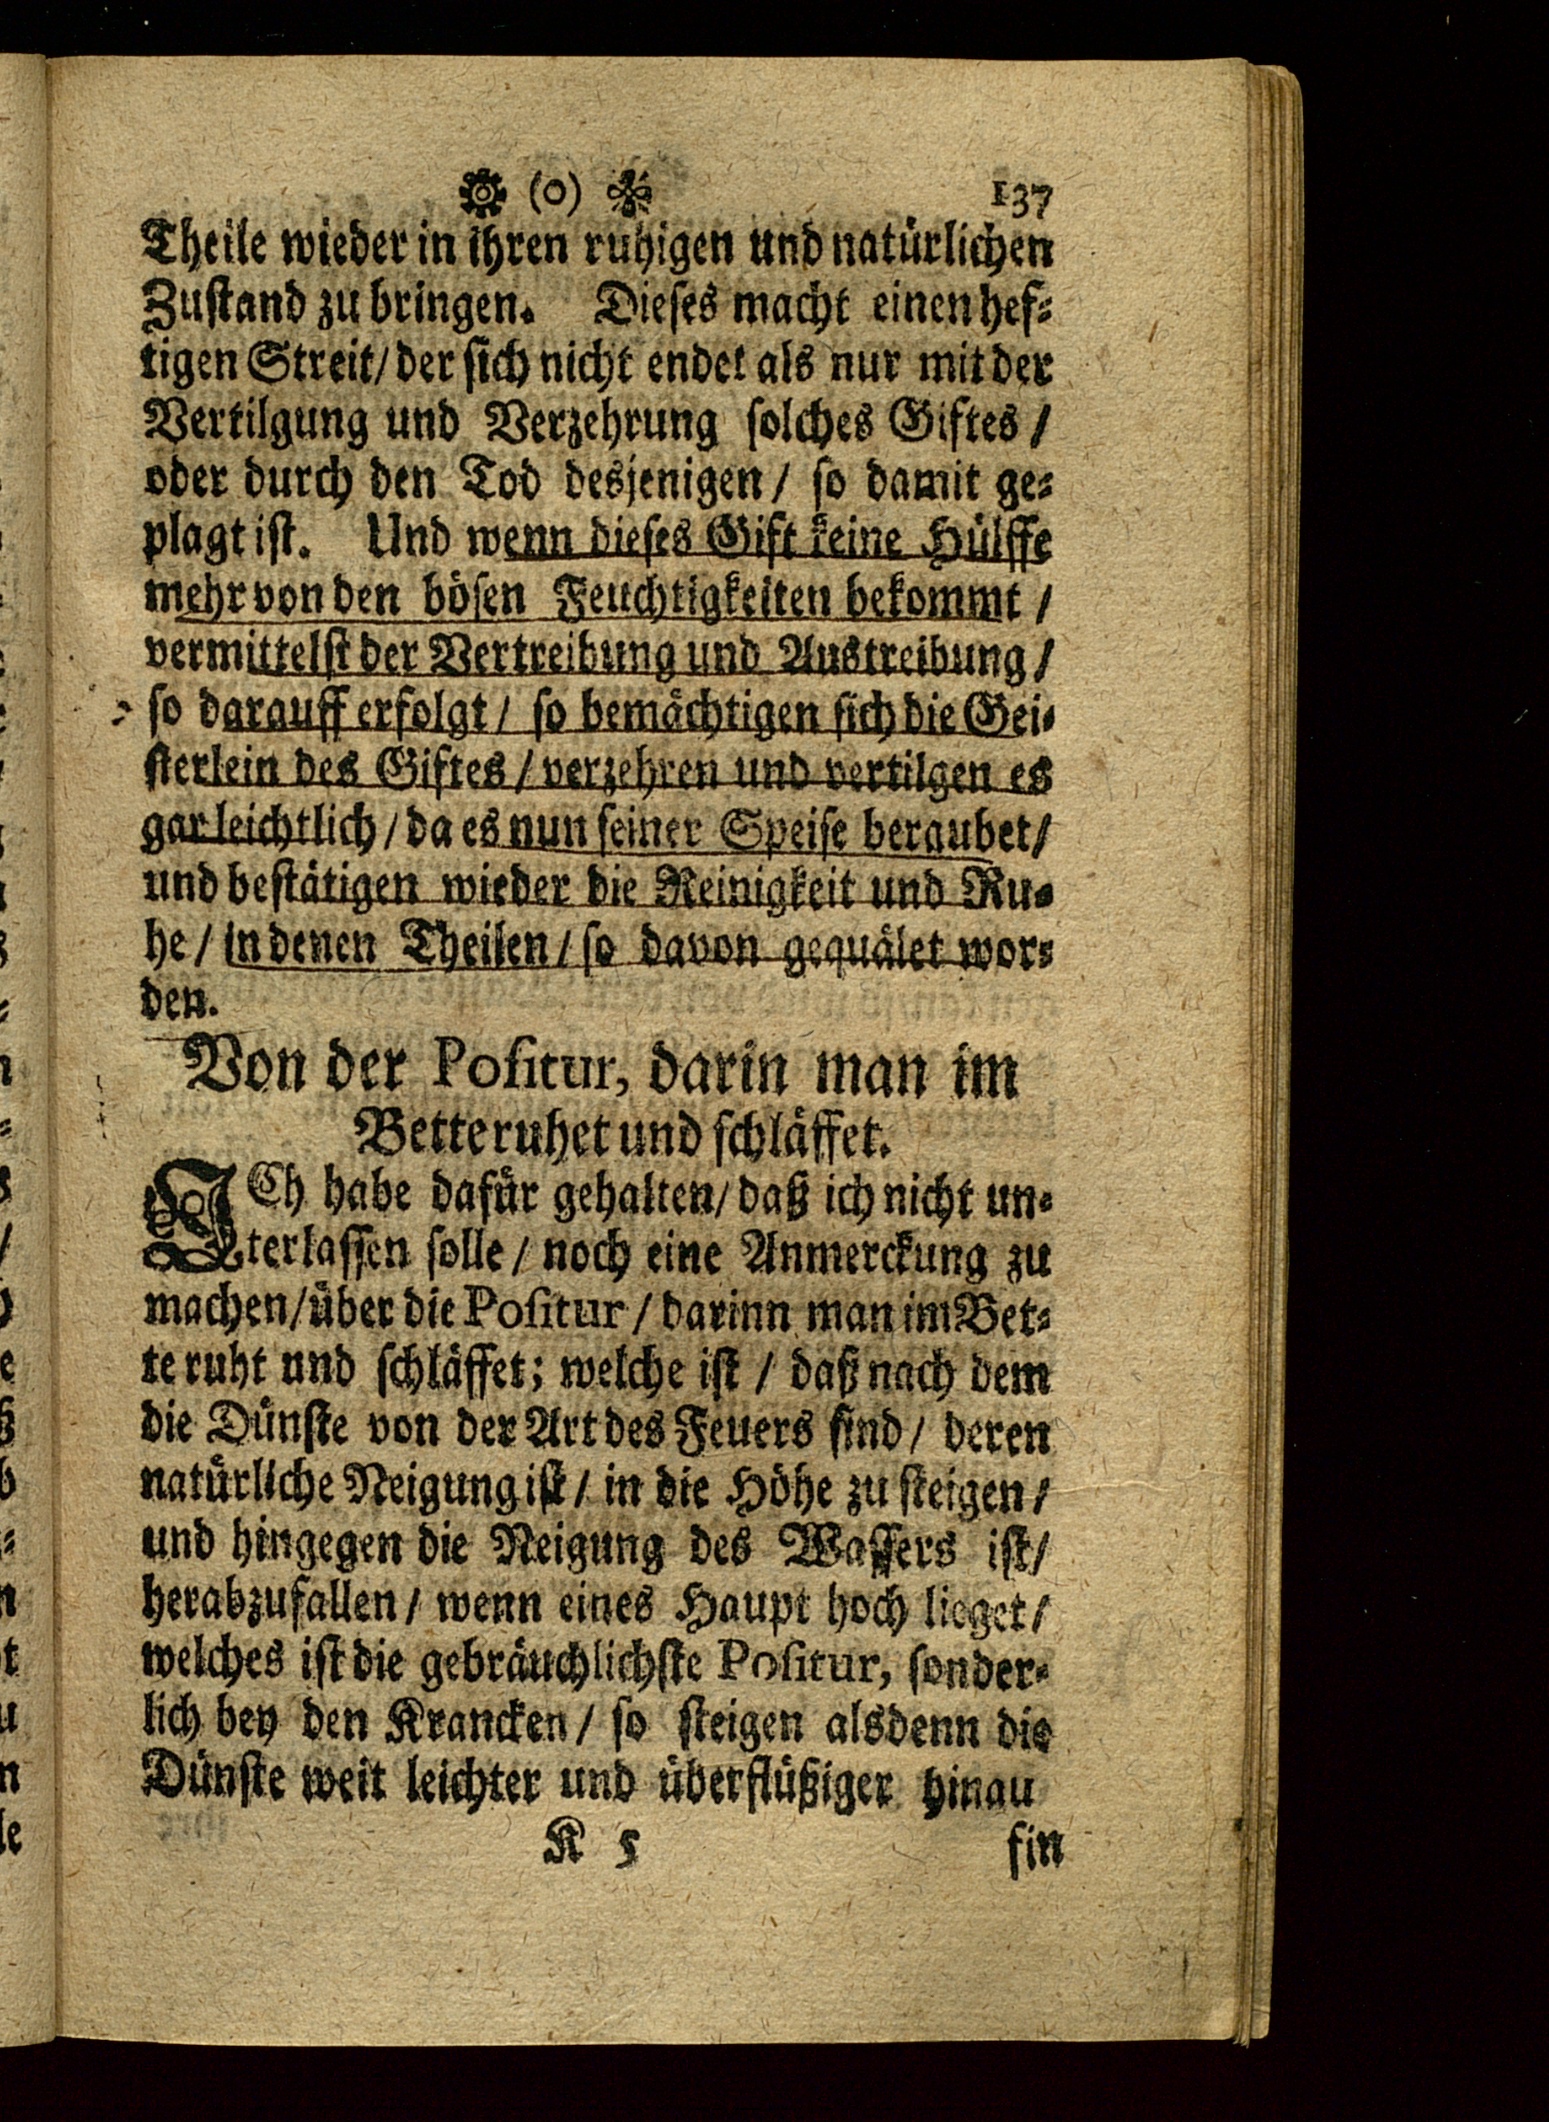 (o) 137
Theile wieder in ihren ruhigen und natürlichen
Zustand zu bringen. Dieses macht einen hef-
tigen Streit/ der sich nicht endet als nur mit der
Vertilgung und Verzehrung solches Giftes /
oder durch den Tod desjenigen / so damit ge-
plagt ist. Und wenn dieses Gift keine Hülffe
mehr von den bösen Feuchtigkeiten bekommt /
vermittelst der Vertreibung und Austreibung /
so darauff erfolgt / so bemächtigen sich die Gei-
sterlein des Giftes / verzehren und vertilgen es
gar leichtlich / da es nun seiner Speise beraubet /
und bestätigen wieder die Reinigkeit und Ru-
he / in denen Theilen / so davon gequälet wor-
den.
Von der Positur, darin man im
Bette ruhet und schläffet.
ICh habe dafür gehalten/ daß ich nicht un-
terlassen solle / noch eine Anmerckung zu
machen/ über die Positur / darinn man im Bet-
te ruht und schläffet; welche ist / daß nach dem
die Dünste von der Art des Feuers sind / deren
natürliche Neigung ist / in die Höhe zu steigen /
und hingegen die Neigung des Wassers ist /
herabzufallen / wenn eines Haupt hoch lieget /
welches ist die gebräuchlichste Positur, sonder-
lich bey den Krancken / so steigen alsdenn die
Dünste weit leichter und überflüßiger hinau
K 5 fin